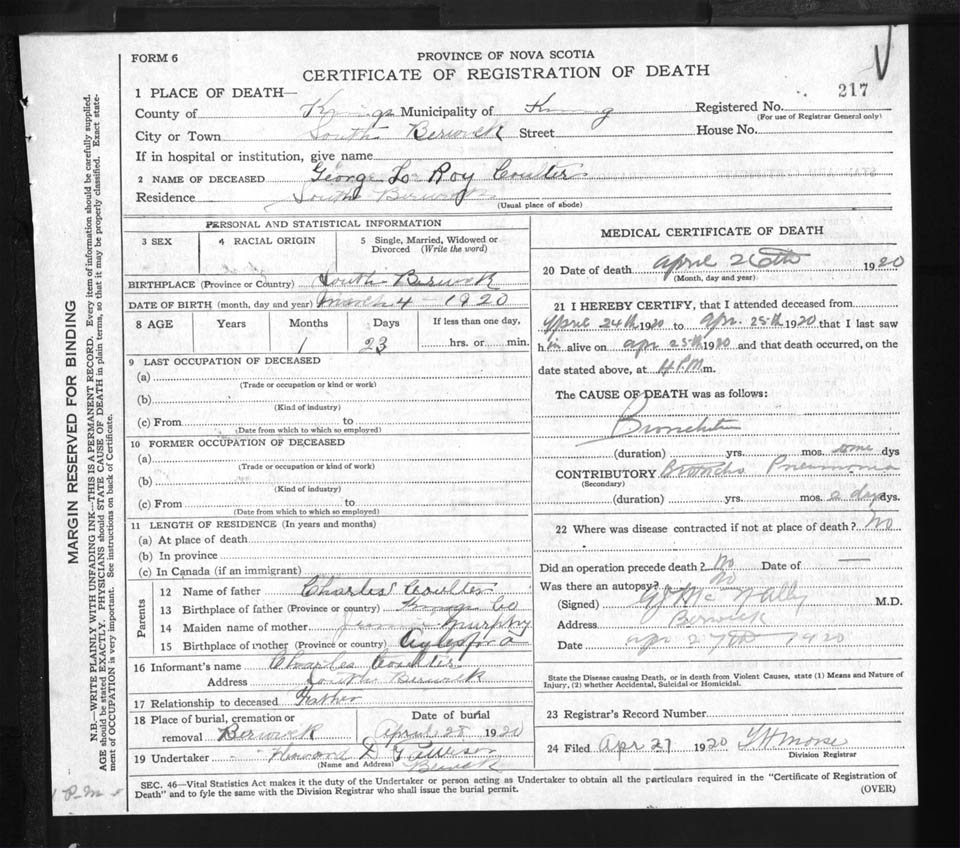 FORM 6
PROVINCE OF NOVA SCOTIA
CERTIFICATE OF REGISTRATION OF DEATH
217
1 PLACE OF DEATH—
County of Kings Municipality of Kings Registered No.
(For use of Registrar General only)
City or Town South Berwick Street House No.
If in hospital or institution, give name
2 NAME OF DECEASED George Le Roy Coulter
Residence South Berwick
(Usual place of abode)
PERSONAL AND STATISTICAL INFORMATION
3 SEX 4 RACIAL ORIGIN 5 Single, Married, Widowed or Divorced (Write the word)
BIRTHPLACE (Province or Country) South Berwick
DATE OF BIRTH (month, day and year) March 4 - 1920
8 AGE Years Months Days If less than one day,
1 23 hrs. or min.
9 LAST OCCUPATION OF DECEASED
(a)
(Trade or occupation or kind or work)
(b)
(Kind of industry)
(c) From to
(Date from which to which so employed)
10 FORMER OCCUPATION OF DECEASED
(a)
(Trade or occupation or kind of work)
(b)
(Kind of industry)
(c) From to
(Date from which to which so employed)
11 LENGTH OF RESIDENCE (In years and months)
(a) At place of death
(b) In province
(c) In Canada (if an immigrant)
Parents
12 Name of father Charles Coulter
13 Birthplace of father (Province or country) Kings Co
14 Maiden name of mother Murphy
15 Birthplace of mother (Province or country) Aylesford
16 Informant's name Charles Coulter
Address South Berwick
17 Relationship to deceased Father
18 Place of burial, cremation or removal Berwick Date of burial April 28 1920
19 Undertaker Howard D
(Name and Address) Berwick
MEDICAL CERTIFICATE OF DEATH
20 Date of death April 26th 1920
(Month, day and year)
21 I HEREBY CERTIFY, that I attended deceased from
April 24th 1920 to Apr. 25th 1920 that I last saw
him alive on Apr 25th 1920 and that death occurred, on the
date stated above, at 4 P.M m.
The CAUSE OF DEATH was as follows:
Bronchitis
(duration) yrs. mos. some dys
CONTRIBUTORY Broncho Pneumonia
(Secondary)
(duration) yrs. mos. 2 days dys.
22 Where was disease contracted if not at place of death? No
Did an operation precede death? No Date of —
Was there an autopsy? No
(Signed) McNally M.D.
Address Berwick
Date Apr 27th 1920
State the Disease causing Death, or in death from Violent Causes, state (1) Means and Nature of
Injury, (2) whether Accidental, Suicidal or Homicidal.
23 Registrar's Record Number
24 Filed Apr 27 1920 Morse
Division Registrar
SEC. 46—Vital Statistics Act makes it the duty of the Undertaker or person acting as Undertaker to obtain all the particulars required in the "Certificate of Registration of
Death" and to fyle the same with the Division Registrar who shall issue the burial permit.
(OVER)
MARGIN RESERVED FOR BINDING
N.B.—WRITE PLAINLY WITH UNFADING INK—THIS IS A PERMANENT RECORD. Every item of information should be carefully supplied.
AGE should be stated EXACTLY. PHYSICIANS should STATE CAUSE OF DEATH in plain terms, so that it may be properly classified. Exact state-
ment of OCCUPATION is very important. See instructions on back of Certificate.